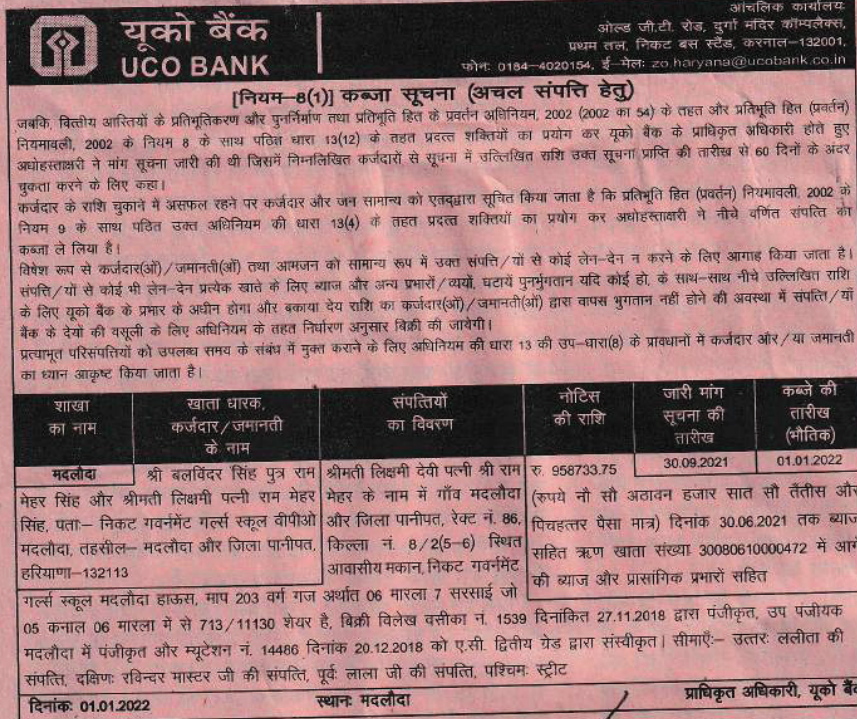 यूको बैंक
UCO BANK
आंचलिक कार्यालय
ओल्ड जी.टी. रोड, दुर्गा मंदिर कॉम्पलैक्स,
प्रथम तल, निकट बस स्टैंड, करनाल–132001,
फोनः 0184–4020154, ई–मेलः zo.haryana@ucobank.co.in
[नियम–8(1)] कब्जा सूचना (अचल संपत्ति हेतु)
जबकि, वित्तीय आस्तियों के प्रतिभूतिकरण और पुनर्निर्माण तथा प्रतिभूति हित के प्रवर्तन अधिनियम, 2002 (2002 का 54) के तहत और प्रतिभूति हित (प्रवर्तन)
नियमावली, 2002 के नियम 8 के साथ पठित धारा 13(12) के तहत प्रदत्त शक्तियों का प्रयोग कर यूको बैंक के प्राधिकृत अधिकारी होते हुए
अधोहस्ताक्षरी ने मांग सूचना जारी की थी जिसमें निम्नलिखित कर्जदारों से सूचना में उल्लिखित राशि उक्त सूचना प्राप्ति की तारीख से 60 दिनों के अंदर
चुकता करने के लिए कहा।
कर्जदार के राशि चुकाने में असफल रहने पर कर्जदार और जन सामान्य को एतद्द्वारा सूचित किया जाता है कि प्रतिभूति हित (प्रवर्तन) नियमावली, 2002 के
नियम 9 के साथ पठित उक्त अधिनियम की धारा 13(4) के तहत प्रदत्त शक्तियों का प्रयोग कर अधोहस्ताक्षरी ने नीचे वर्णित संपत्ति का
कब्जा ले लिया है।
विषेश रूप से कर्जदार(ओं)/जमानती(ओं) तथा आमजन को सामान्य रूप में उक्त संपत्ति/यों से कोई लेन–देन न करने के लिए आगाह किया जाता है।
संपत्ति/यों से कोई भी लेन–देन प्रत्येक खाते के लिए ब्याज और अन्य प्रभारों/व्ययों, घटायें पुनर्भुगतान यदि कोई हो, के साथ–साथ नीचे उल्लिखित राशि
के लिए यूको बैंक के प्रभार के अधीन होगा और बकाया देय राशि का कर्जदार(ओं)/जमानती(ओं) द्वारा वापस भुगतान नहीं होने की अवस्था में संपत्ति/याँ
बैंक के देयों की वसूली के लिए अधिनियम के तहत निर्धारण अनुसार बिक्री की जायेगी।
प्रत्याभूत परिसंपत्तियों को उपलब्ध समय के संबंध में मुक्त कराने के लिए अधिनियम की धारा 13 की उप–धारा(8) के प्रावधानों में कर्जदार और/या जमानती
का ध्यान आकृष्ट किया जाता है।
शाखा का नाम
खाता धारक, कर्जदार/जमानती के नाम
संपत्तियों का विवरण
नोटिस की राशि
जारी मांग सूचना की तारीख
कब्जे की तारीख (भौतिक)
मदलौदा
श्री बलविंदर सिंह पुत्र राम
मेहर सिंह और श्रीमती लिक्षमी पत्नी राम मेहर
सिंह, पताः– निकट गवर्नमेंट गर्ल्स स्कूल वीपीओ
मदलौदा, तहसील– मदलौदा और जिला पानीपत,
हरियाणा–132113
श्रीमती लिक्षमी देवी पत्नी श्री राम
मेहर के नाम में गाँव मदलौदा
और जिला पानीपत, रेक्ट नं. 86,
किल्ला नं. 8/2(5–6) स्थित
आवासीय मकान, निकट गवर्नमेंट
रु. 958733.75
30.09.2021
01.01.2022
(रुपये नौ सौ अठावन हजार सात सौ तैंतीस और
पिचहत्तर पैसा मात्र) दिनांक 30.06.2021 तक ब्याज
सहित ऋण खाता संख्या 30080610000472 में आगे
की ब्याज और प्रासांगिक प्रभारों सहित
गर्ल्स स्कूल मदलौदा हाऊस, माप 203 वर्ग गज अर्थात 06 मारला 7 सरसाई जो
05 कनाल 06 मारला में से 713/11130 शेयर है, बिक्री विलेख वसीका नं. 1539 दिनांकित 27.11.2018 द्वारा पंजीकृत, उप पंजीयक
मदलौदा में पंजीकृत और म्यूटेशन नं. 14486 दिनांक 20.12.2018 को ए.सी. द्वितीय ग्रेड द्वारा संस्वीकृत। सीमाएँ:– उत्तरः ललीता की
संपत्ति, दक्षिणः रविन्दर मास्टर जी की संपत्ति, पूर्वः लाला जी की संपत्ति, पश्चिमः स्ट्रीट
दिनांकः 01.01.2022 स्थानः मदलौदा प्राधिकृत अधिकारी, यूको बैंक